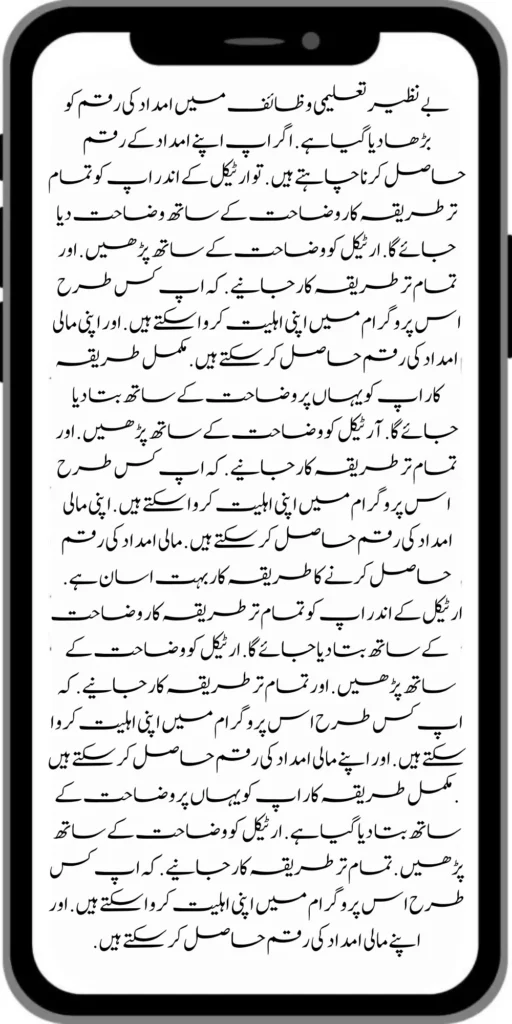 بے نظیر تعلیمی وظائف میں امداد کی رقم کو
بڑھا دیا گیا ہے. اگر اپ اپنے امداد کے رقم
حاصل کرنا چاہتے ہیں. تو ارٹیکل کے اندر اپ کو تمام
تر طریقہ کار وضاحت کے ساتھ وضاحت دیا
جائے گا. ارٹیکل کو وضاحت کے ساتھ پڑھیں. اور
تمام تر طریقہ کار جانیے. کہ اپ کس طرح
اس پروگرام میں اپنی اہلیت کروا سکتے ہیں. اور اپنی مالی
امداد کی رقم حاصل کر سکتے ہیں. مکمل طریقہ
کار اپ کو یہاں پر وضاحت کے ساتھ بتا دیا
جائے گا. آرٹیکل کو وضاحت کے ساتھ پڑھیں. اور
تمام تر طریقہ کار جانیے. کہ اپ کس طرح
اس پروگرام میں اپنی اہلیت کروا سکتے ہیں. اپنی مالی
امداد کی رقم حاصل کر سکتے ہیں. مالی امداد کی رقم
حاصل کرنے کا طریقہ کار بہت اسان ہے.
ارٹیکل کے اندر اپ کو تمام تر طریقہ کار وضاحت
کے ساتھ بتا دیا جائے گا. ارٹیکل کو وضاحت کے
ساتھ پڑھیں. اور تمام تر طریقہ کار جانیے. کہ
اپ کس طرح اس پروگرام میں اپنی اہلیت کروا
سکتے ہیں. اور اپنے مالی امداد کی رقم حاصل کر سکتے ہیں
. مکمل طریقہ کار اپ کو یہاں پر وضاحت کے
ساتھ بتا دیا گیا ہے. ارٹیکل کو وضاحت کے ساتھ
پڑھیں. تمام تر طریقہ کار جانیے. کہ اپ کس
طرح اس پروگرام میں اپنی اہلیت کروا سکتے ہیں. اور
اپنے مالی امداد کی رقم حاصل کر سکتے ہیں.